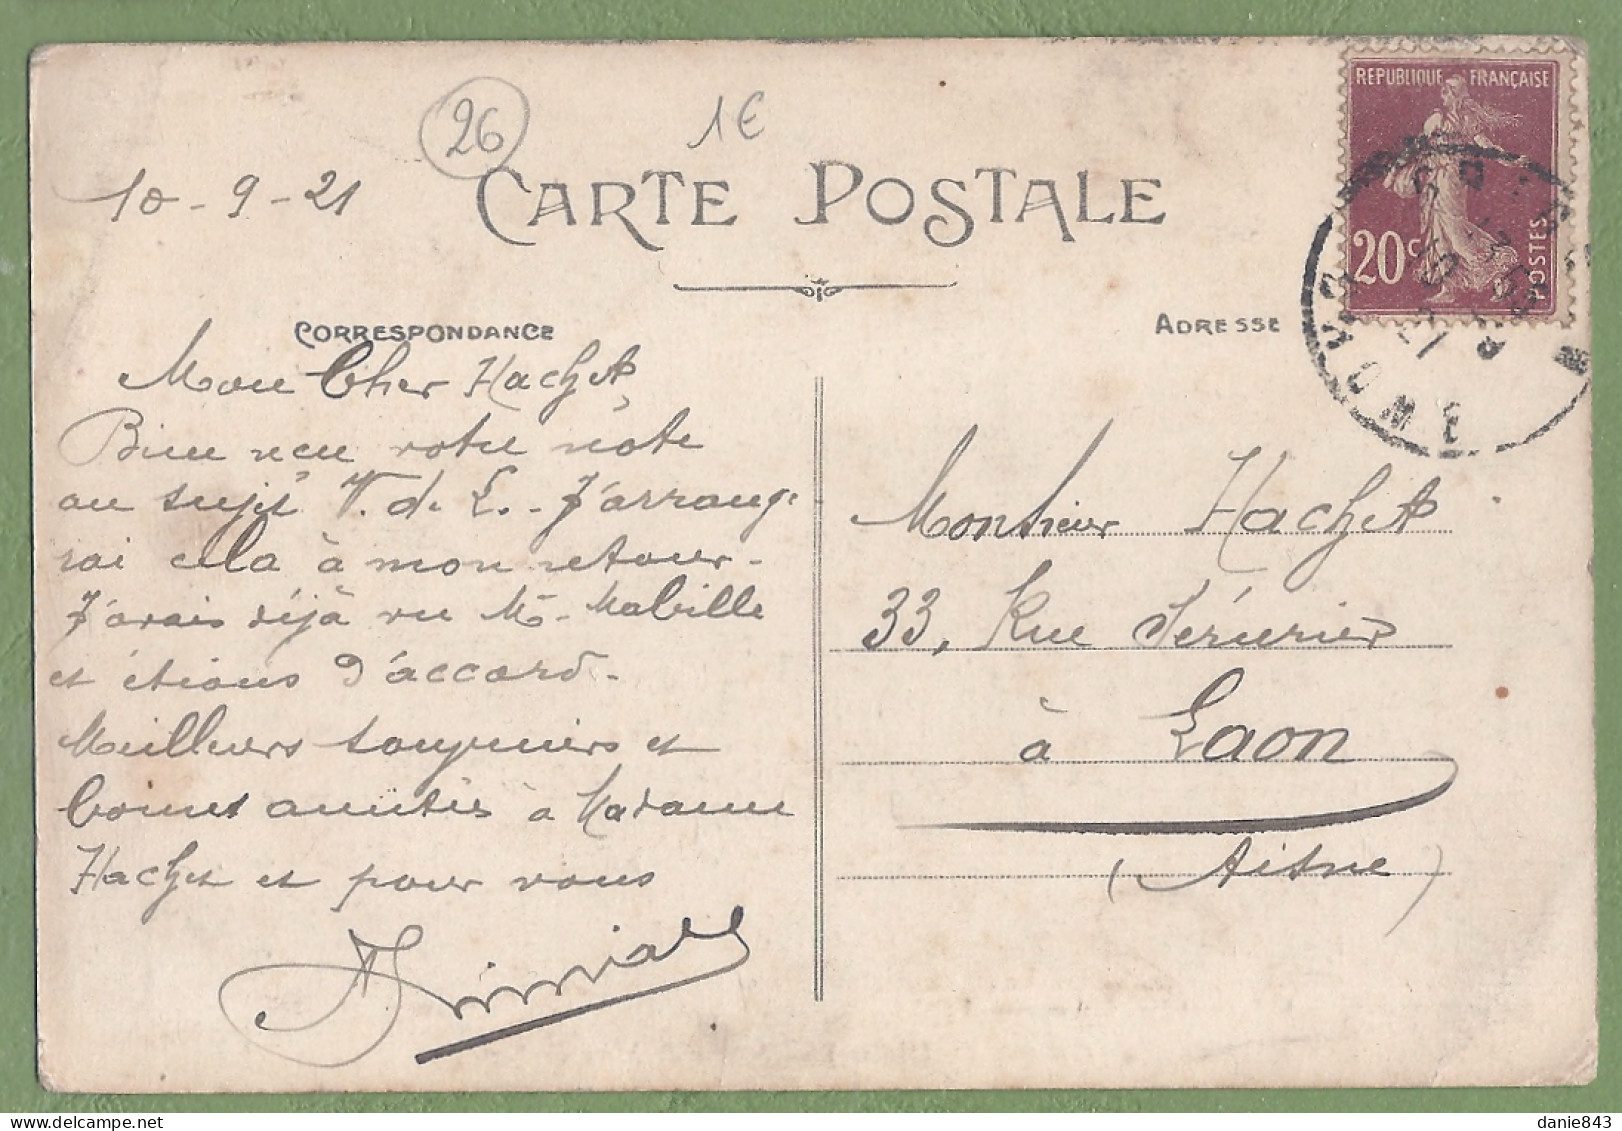 26
1€
10-9-21
CARTE POSTALE
REPUBLIQUE FRANÇAISE
20c
POSTES
DIE
DROME
CORRESPONDANCE
ADRESSE
Mon Cher Hachet,
Bien reçu votre note
au sujet V. de L. - J'arrange
rai cela à mon retour -
J'avais déjà vu Mr. Mabille
et étions d'accord -
Meilleurs souvenirs et
bonnes amitiés à Madame
Hachet et pour vous
Monsieur Hachet
33, Rue Sérurier
à Laon
(Aisne)
danie843